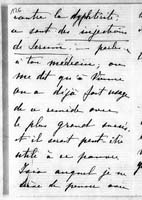 126
contre la diphtérie :
ce sont des injections
de Serum : parles
à ton médecin, on
me dit qu'à Vienne
on a déjà fait usage
de ce remède avec
le plus grand succès,
et il serait peut-être
utile à ce pauvre
auquel je ne
cesse de penser avec